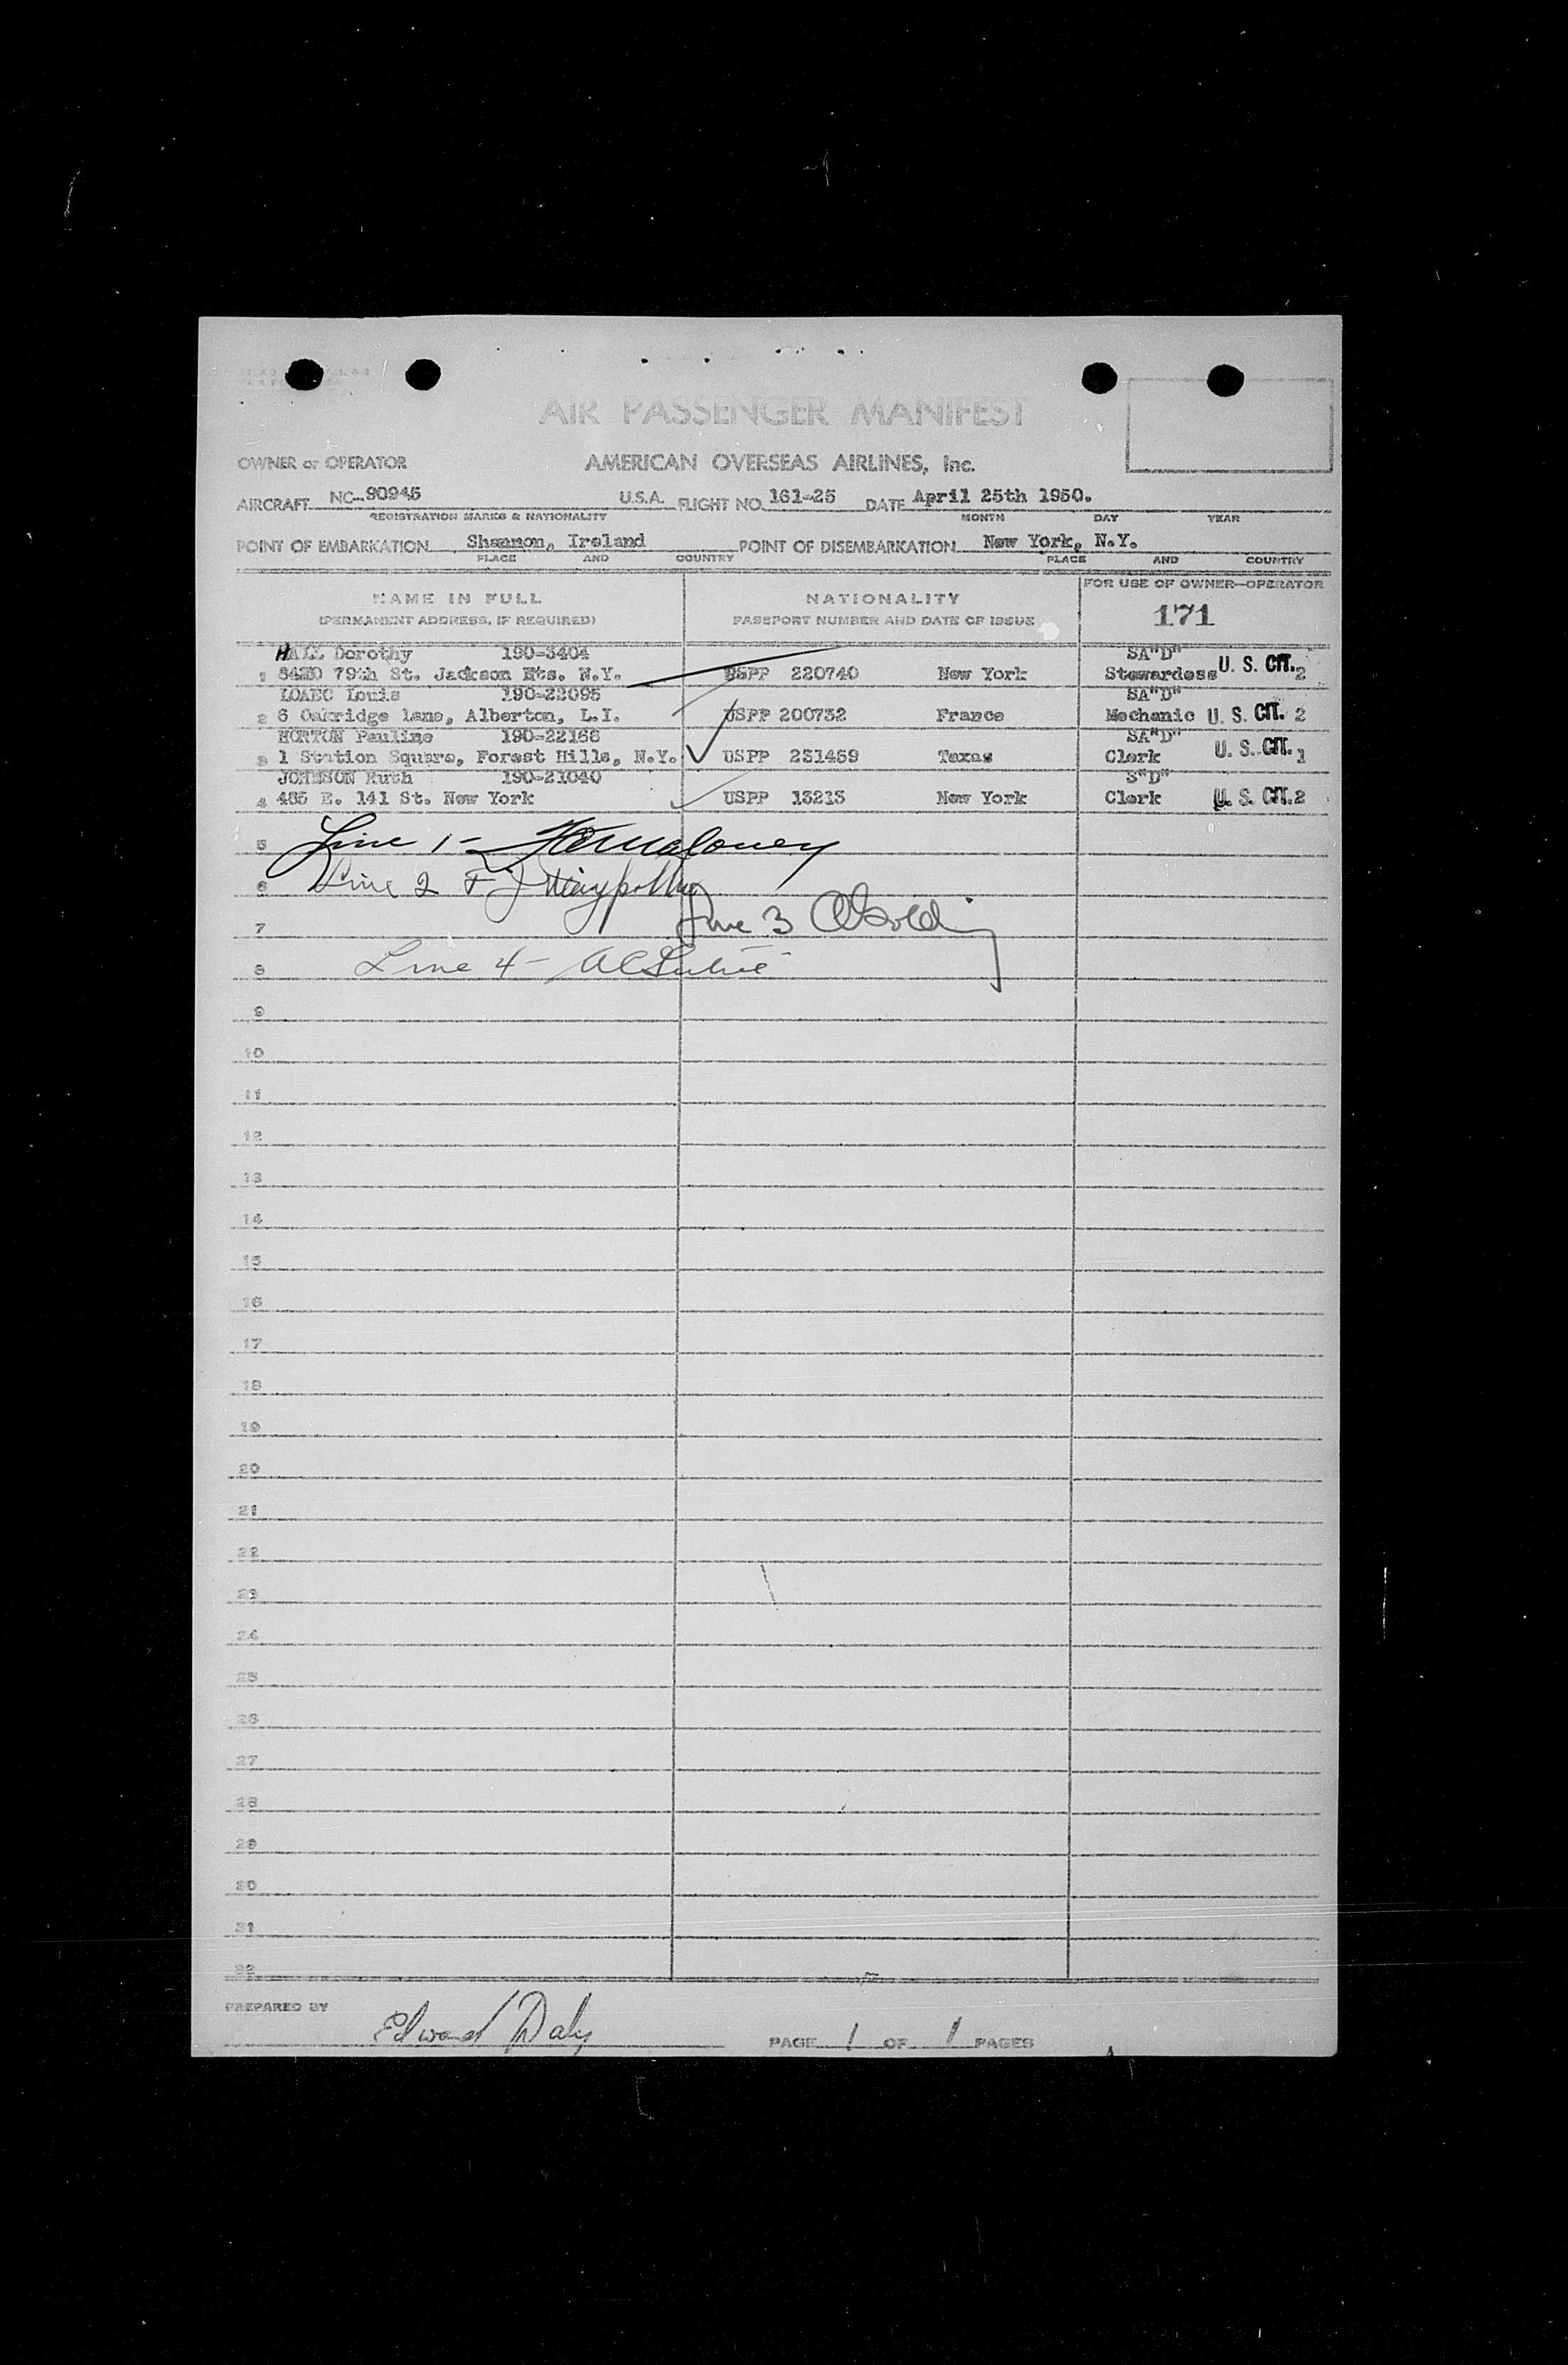 AIR PASSENGER MANIFEST
OWNER or OPERATOR AMERICAN OVERSEAS AIRLINES, Inc.
AIRCRAFT NC-90945 U.S.A. FLIGHT NO. 161-25 DATE April 25th 1950.
REGISTRATION MARKS & NATIONALITY MONTH DAY YEAR
POINT OF EMBARKATION Shannon, Ireland POINT OF DISEMBARKATION New York, N.Y.
PLACE AND COUNTRY PLACE AND COUNTRY
NAME IN FULL NATIONALITY FOR USE OF OWNER—OPERATOR
(PERMANENT ADDRESS, IF REQUIRED) PASSPORT NUMBER AND DATE OF ISSUE 171
HALL Dorothy 190-3404 SA"D"
1 8420 79th St. Jackson Hts. N.Y. USPP 220740 New York Stewardess U. S. CIT. 2
LOAEC Louis 190-22095 SA"D"
2 6 Oakridge lane, Alberton, L.I. USPP 200732 France Mechanic U. S. CIT. 2
HORTON Pauline 190-22168 SA"D"
3 1 Station Square, Forest Hills, N.Y. USPP 231459 Texas Clerk U. S. CIT. 1
JOHNSON Ruth 190-21040 S"D"
4 485 E. 141 St. New York USPP 13213 New York Clerk U. S. CIT. 2
5 Line 1-
6 Line 2 F J
7 Line 3
8 Line 4-
9
10
11
12
13
14
15
16
17
18
19
20
21
22
23
24
25
26
27
28
29
30
31
32
PREPARED BY Edward Daly PAGE 1 OF 1 PAGES